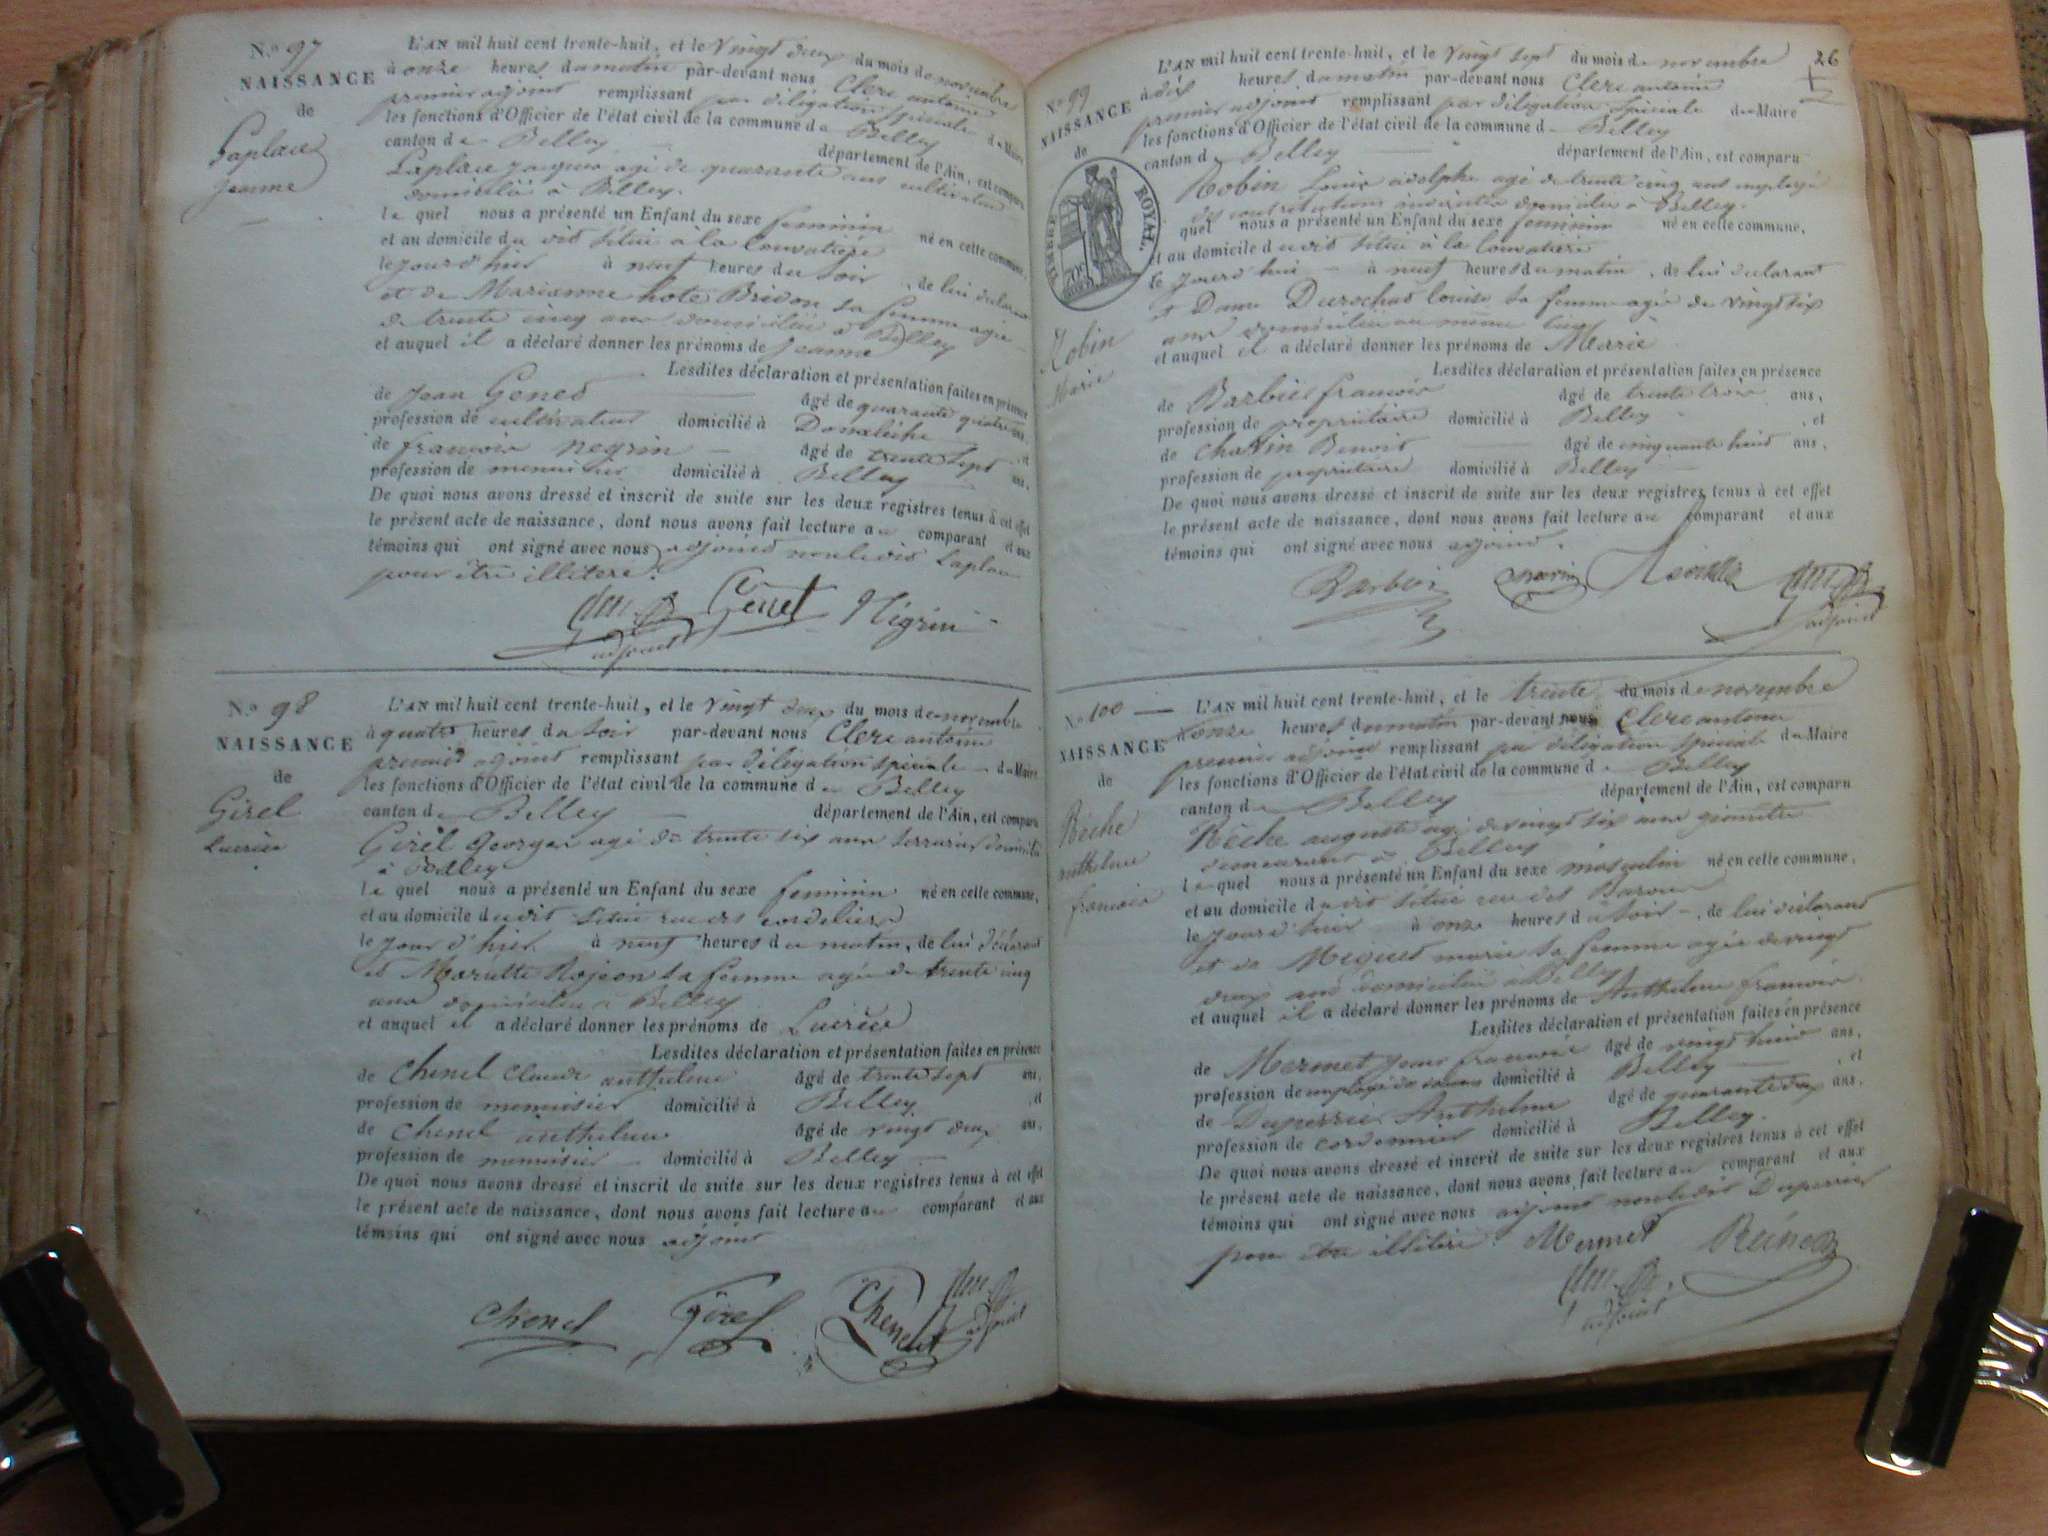 N.° 97
NAISSANCE
de
Laplace
Jeanne
L'AN mil huit cent trente-huit, et le vingt deux du mois de novembre
à onze heures du matin par-devant nous Clerc antoine
premier adjoint remplissant par délégation spéciale du Maire
les fonctions d'Officier de l'état civil de la commune de Belley
canton de Belley département de l'Ain, est comparu
Laplace Jacques agé de quarante ans cultivateur
domicilié à Belley.
le quel nous a présenté un Enfant du sexe feminin né en cette commune,
et au domicile du dit situé à la Louvatière
le jour d'hier à neuf heures du soir, de lui déclarant
et de Marianne hote Bridon sa femme agée
de trente cinq ans domiciliée à Belley
et auquel il a déclaré donner les prénoms de Jeanne
Lesdites déclaration et présentation faites en présence
de Jean Genet âgé de quarante quatre ans,
profession de cultivateur domicilié à et
de francois negrin âgé de trente sept ans,
profession de menuisier domicilié à Belley
De quoi nous avons dressé et inscrit de suite sur les deux registres tenus à cet effet
le présent acte de naissance, dont nous avons fait lecture au comparant et aux
témoins qui ont signé avec nous adjoint non ledit Laplace
pour être illiteré.
Genet Négrin
adjoint
N.° 98
NAISSANCE
de
Girel
Lucrèce
L'AN mil huit cent trente-huit, et le vingt deux du mois de novembre
à quatre heures du soir par-devant nous Clerc antoine
premier adjoint remplissant par délégation spéciale du Maire
les fonctions d'Officier de l'état civil de la commune de Belley
canton de Belley département de l'Ain, est comparu
Girel George agé de trente six ans serrurier domicilié
à Belley
Le quel nous a présenté un Enfant du sexe feminin né en cette commune,
et au domicile du dit situé rue des cordeliers
le jour d'hier à neuf heures du matin, de lui déclarant
et Mariette Rojeon sa femme agée de trente cinq
ans domiciliée à Belley
et auquel il a déclaré donner les prénoms de Lucrèce
Lesdites déclaration et présentation faites en présence
de Chenel Claude anthelme âgé de trente sept ans,
profession de menuisier domicilié à Belley et
de Chenel anthelme âgé de vingt deux ans,
profession de menuisier domicilié à Belley
De quoi nous avons dressé et inscrit de suite sur les deux registres tenus à cet effet
le présent acte de naissance, dont nous avons fait lecture au comparant et aux
témoins qui ont signé avec nous adjoint
Chenel Girel Chenel
adjoint
26
N.° 99
NAISSANCE
de
TIMBRE ROYAL.
Robin
Marie
L'AN mil huit cent trente-huit, et le vingt sept du mois de novembre
à dix heures du matin par-devant nous Clerc antoine
premier adjoint remplissant par délégation spéciale du Maire
les fonctions d'Officier de l'état civil de la commune d Belley
canton de Belley département de l'Ain, est comparu
Robin Louis adolphe agé de trente cinq ans employé
des contributions indirectes domicilié à Belley.
quel nous a présenté un Enfant du sexe feminin né en cette commune,
et au domicile du dit situé à la Louvatière
le jourd'hui à neuf heures du matin, de lui déclarant
et Dame Durochat louise sa femme agée de vingt six
ans domiciliée au même lieu
et auquel il a déclaré donner les prénoms de Marie
Lesdites déclaration et présentation faites en présence
de Barbier francois âgé de trente trois ans,
profession de propriétaire domicilié à Belley, et
de Benoit âgé de cinquante huit ans,
profession de propriétaire domicilié à Belley
De quoi nous avons dressé et inscrit de suite sur les deux registres tenus à cet effet
le présent acte de naissance, dont nous avons fait lecture au comparant et aux
témoins qui ont signé avec nous adjoint.
adjoint
N.° 100
NAISSANCE
de
Rèche
anthelme
francois
L'AN mil huit cent trente-huit, et le trente du mois de novembre
à onze heures du matin par-devant nous Clerc antoine
premier adjoint remplissant par délégation spéciale du Maire
les fonctions d'Officier de l'état civil de la commune d Belley
canton de Belley département de l'Ain, est comparu
Rèche auguste agé de vingt six ans géomètre
demeurant à Belley
le quel nous a présenté un Enfant du sexe masculin né en cette commune,
et au domicile du dit situé rue des Barons
le jour d'hier à onze heures du soir, de lui déclarant
et de Miguet marie sa femme agée de vingt
deux ans domiciliée à Belley
et auquel il a déclaré donner les prénoms de Anthelme francois.
Lesdites déclaration et présentation faites en présence
de Mermet Jean francois âgé de vingt huit ans,
profession de employé domicilié à Belley, et
de Duperrier Anthelme âgé de quarante deux ans,
profession de cordonnier domicilié à Belley.
De quoi nous avons dressé et inscrit de suite sur les deux registres tenus à cet effet
le présent acte de naissance, dont nous avons fait lecture au comparant et aux
témoins qui ont signé avec nous adjoint non ledit Duperrier
pour être illiteré. Mermet
adjoint